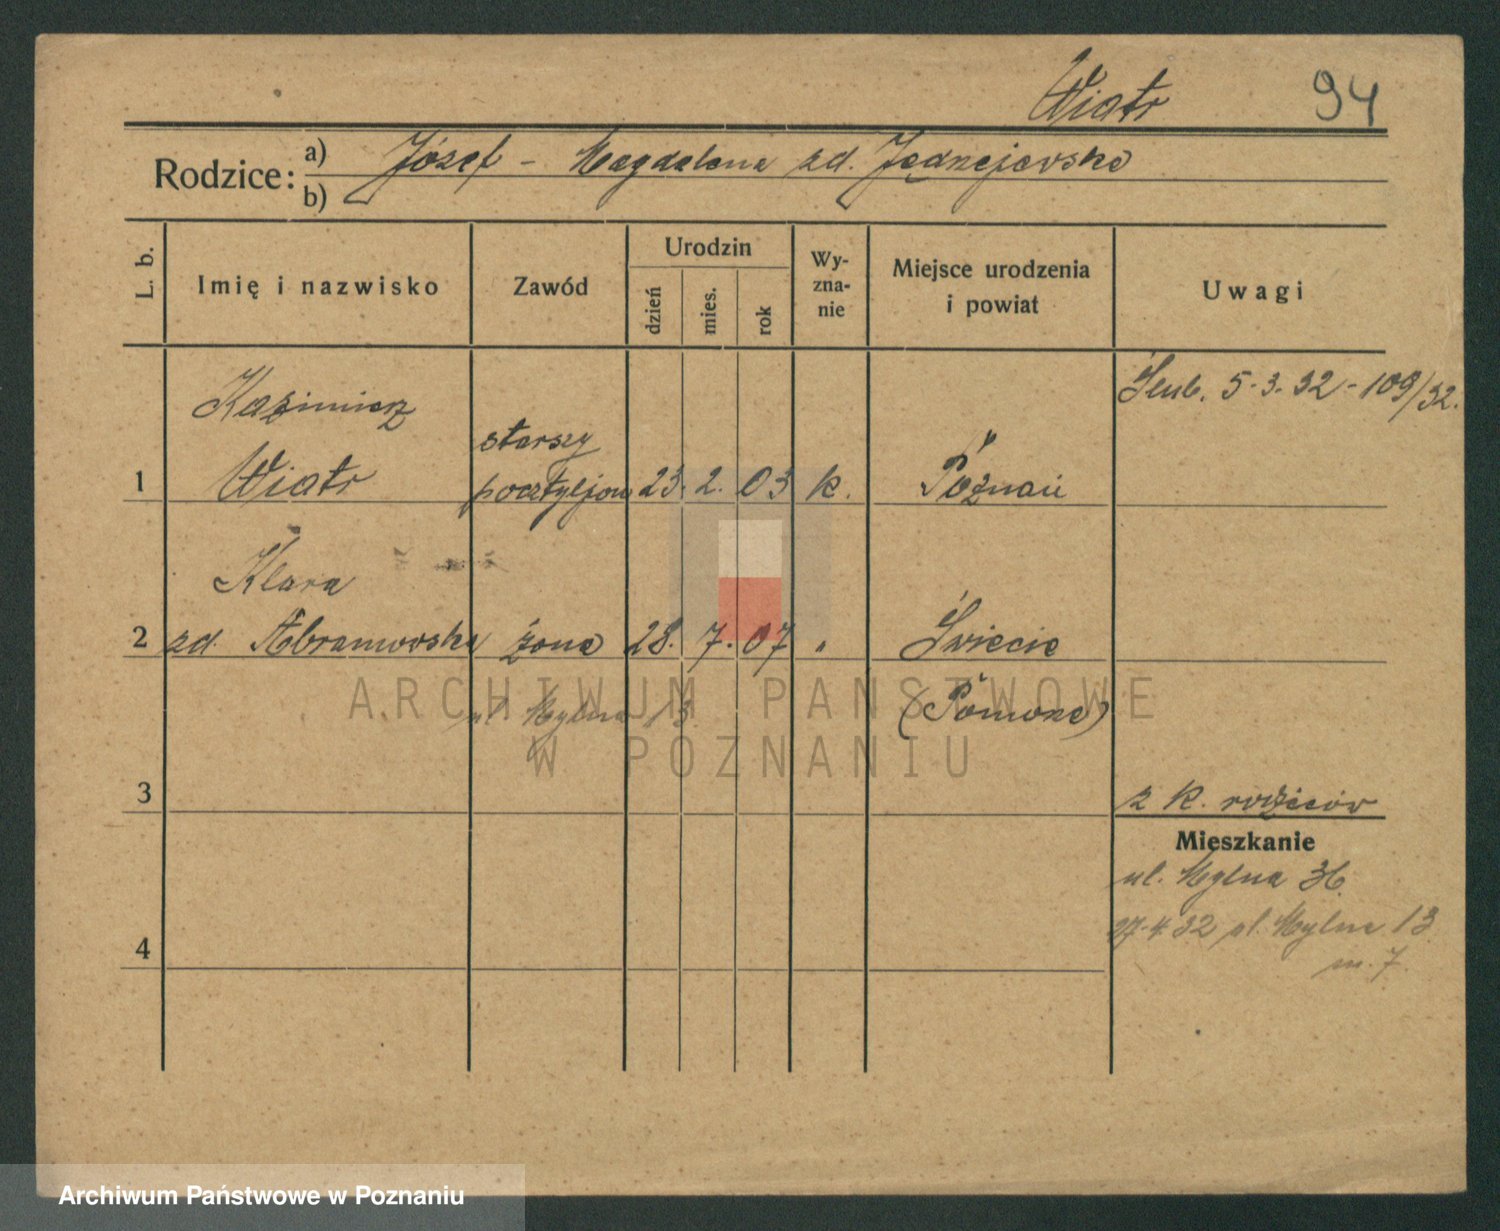 Wiatr 94
Rodzice: a) Józef - Magdalena zd. Jędrzejewska
b)
L. b. Imię i nazwisko Zawód Urodzin dzień mies. rok Wy-zna-nie Miejsce urodzenia i powiat Uwagi
Ślub. 5-3-32 - 109/32.
Kazimierz
starszy
1 Wiatr pocztyljon 23. 2. 03 k. Poznań
Klara
2 zd. Abramowska żona 28. 7. 07 " Świecie
ul. Mylna 13 (Pomorze)
3 z k. rodziców
Mieszkanie
ul. Mylna 36
27-4-32 ul. Mylna 13
4 m. 7.
ARCHIWUM PAŃSTWOWE
W POZNANIU
Archiwum Państwowe w Poznaniu